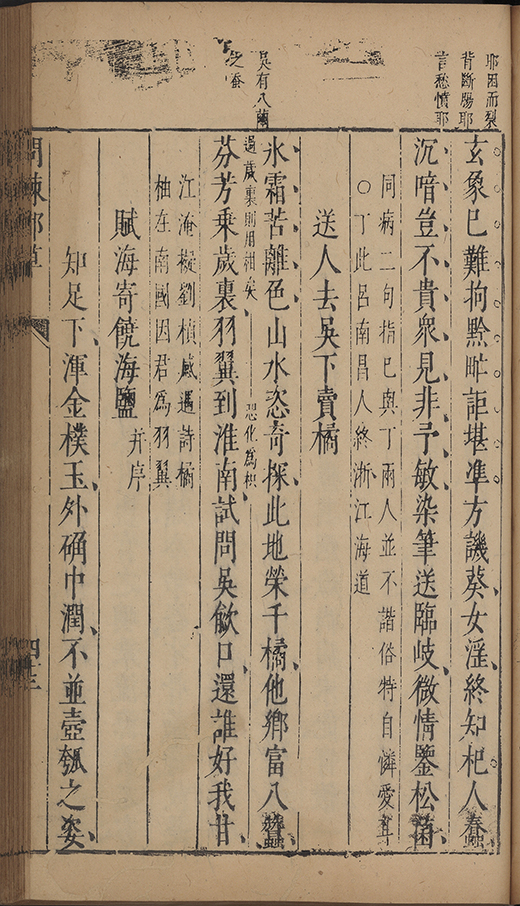 耶因而裂
背斷腸耶
言愁憤耶
吳有八繭
之蚕
玄象已難拘黔甿詎堪準方譏葵女淫終知杞人蠢
沉喑豈不貴衆見非予敏染筆送臨岐微情鑒松菌
同病二句指已與丁兩人並不諧俗特自憐愛耳
○丁此呂南昌人終浙江海道
送人去吳下賣橘
氷霜苦離色山水恣奇探此地榮千橘他鄉富八蠶
過歲裏則用柑矣
恐化為枳
芬芳乗歲裏羽翼到淮南試問吳歈口還誰好我甘
江淹擬劉楨感遇詩橘
柚在南國因君為羽翼
賦海寄饒海鹽
并序
知足下渾金樸玉外确中潤不並壺瓠之姿
問棘郵草
四十三